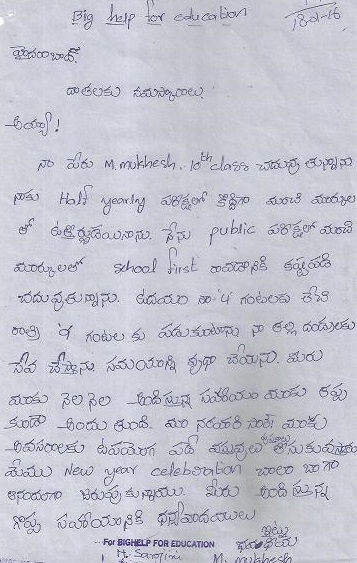 Big help for education
18-01-16
హైదరాబాద్.
దాతలకు నమస్కారాలు.
అయ్యా!
నా పేరు M. mukhesh. 10th class చదువు తున్నాను
నాకు Half yearly పరిక్షలో కొద్దిగా మంచి మార్కుల
తో ఉత్తీర్ణుడయినాను. నేను public పరిక్షలో మంచి
మార్కులతో school first రావడానికి కష్టపడి
చదువుతున్నాను. ఉదయం నా 4 గంటలకు లేచి
రాత్రి 9 గంటల కు పడుకుంటాను నా తల్లి దండ్రులకు
సేవ చేస్తాను సమయాన్ని వృధా చేయను. మీరు
మాకు నెల నెల అందిస్తున్న సహాయం మాకు తప్ప
కుండా అందు తుంది. మా నరహరి సార్ మాకు
అవసరాలకు ఉపయోగ పడే వస్తువులు తీసుకువస్తారు
మేము New year celebration చాలా బాగా
ఆనందంగా జరుపు కున్నాము. మీరు అంది స్తున్న
గొప్ప సహాయానికి ధన్యవాదములు
ఇట్లు
For BIGHELP FOR EDUCATION
H. Sarojini
M. mukhesh